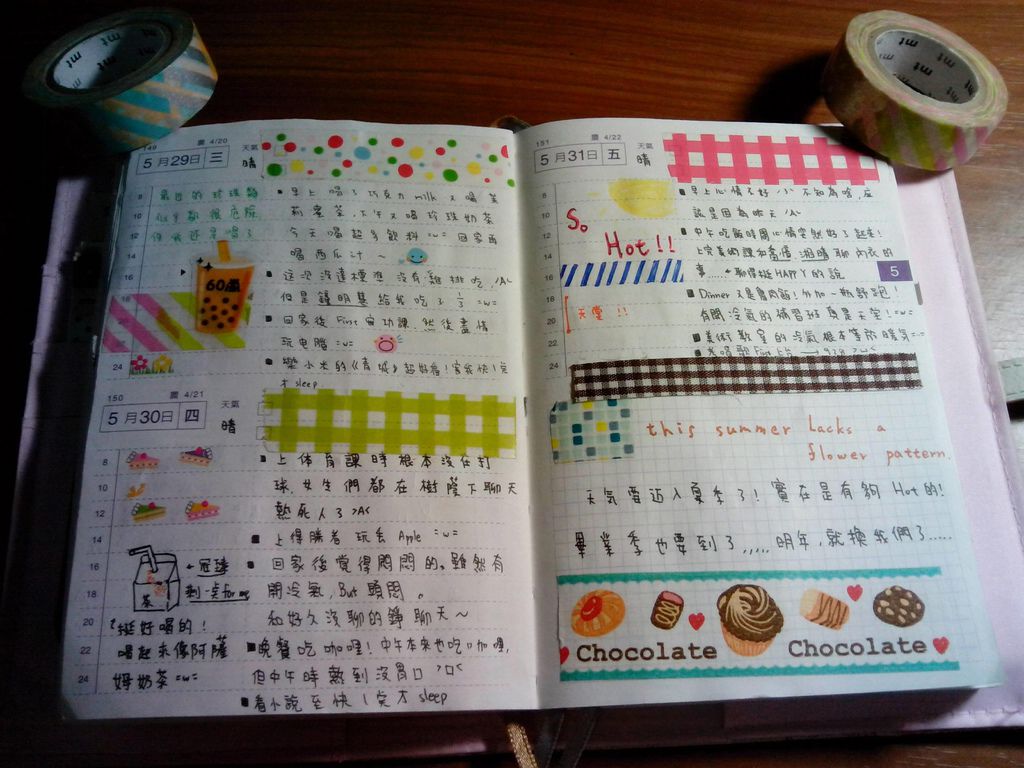 mt
mt
149 農 4/20
5月29日 三 天氣 晴
8
10
12
14
16
18
20
22
24
最近的珍珠
但我還是喝了
60萬
■ 早上喝了巧克力 milk 又喝茉
莉蜜茶,下午又喝珍珠奶茶
今天喝超多飲料 =w= 回家再
喝西瓜汁~
■ 這次沒達標準 沒有雞排吃,>A<
但是鍾明慧給我吃了 1/3 =w=
■ 回家後 First 寫功課,然後盡情
玩電腦 =w=
■ 樂小米的《青城》超好看!害我快1點
才 sleep
150 農 4/21
5月30日 四 天氣 晴
8
10
12
14
16
18
20
22
24
茶
←冠臻
剩一点for me
挺好喝的!
喝起來像阿薩
姆奶茶 =w=
■ 上体育課時根本沒在打
球,女生們都在樹蔭下聊天
熱死人了 >A<
■ 上得勝者 玩丟 Apple =w=
■ 回家後覺得悶悶的。雖然有
開冷氣,But 頭悶。
和好久沒聊的錚聊天~
■ 晚餐吃咖哩!中午本來也吃咖哩,
但中午時熱到沒胃口 >口<
■ 看小說至快1點才 sleep
151 農 4/22
5月31日 五 天氣 晴
8
10
12
14
16
18
20
22
24
So
Hot!!
天堂!!
■ 早上心情不好,不知為啥,應
該是因為昨天 >A<
■ 中午吃飯時間心情突然好了起來!
上完美術課和書優、湘晴聊內衣的
事....←聊得挺HAPPY的說
■ Dinner 又是魯肉飯!外加一瓶舒跑!
有開冷氣的補習班真是天堂!=w=
■ 美術教室的冷氣根本等於暖氣 =.=
5
this summer lacks a
flower pattern.
天氣要迈入夏季了!實在是有夠 Hot 的!
畢業季也要到了,,,,,明年,就換我們了.....
Chocolate
Chocolate